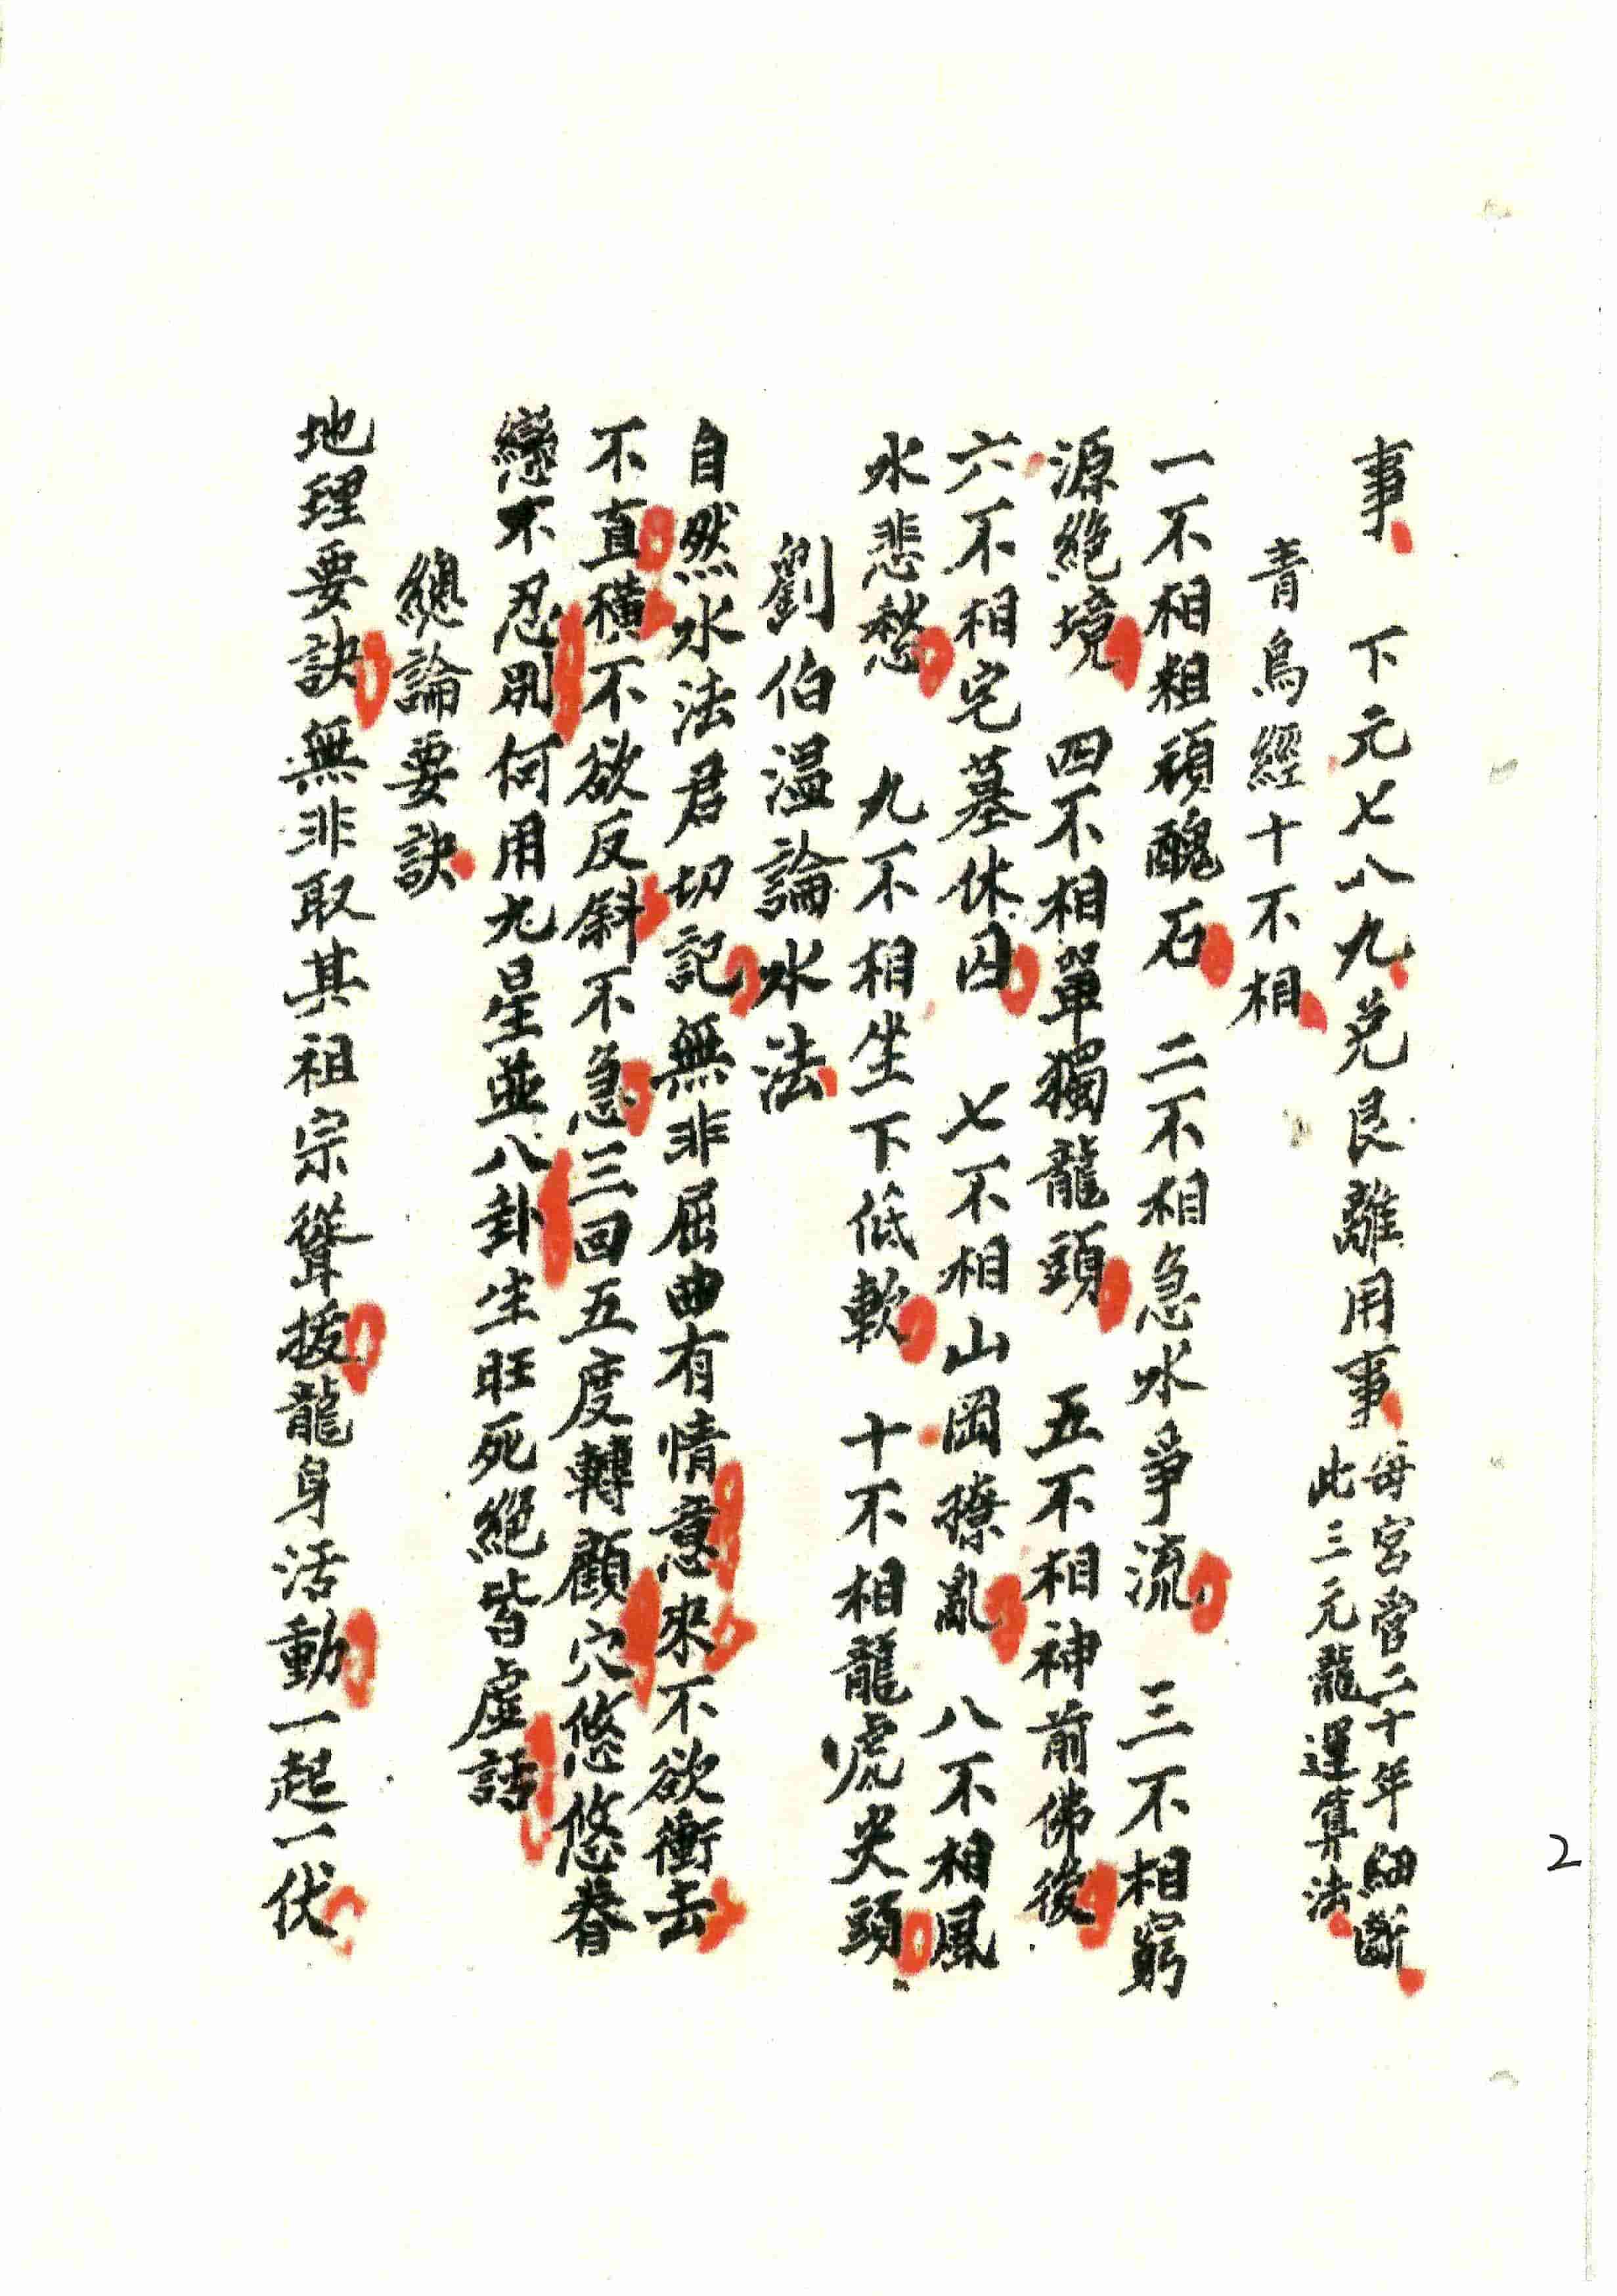 事　下元七八九兑艮離用事每宮管二十年細斷
此三元龍運算法
青烏經十不相
一不相粗頑醜石　二不相急水爭流　三不相窮
源絕境　四不相單獨龍頭　五不相神前佛後
六不相宅墓休囚　七不相山岡撩亂　八不相風
水悲愁　九不相坐下低軟　十不相龍虎尖頭
劉伯溫論水法
自然水法君切記無非屈曲有情意來不欲衝去
不直橫不欲反斜不急三回五度轉顧穴悠悠眷
戀不忍別何用九星並八卦生旺死絕皆虛話
總論要訣
地理要訣無非取其祖宗聳拔龍身活動一起一伏
2